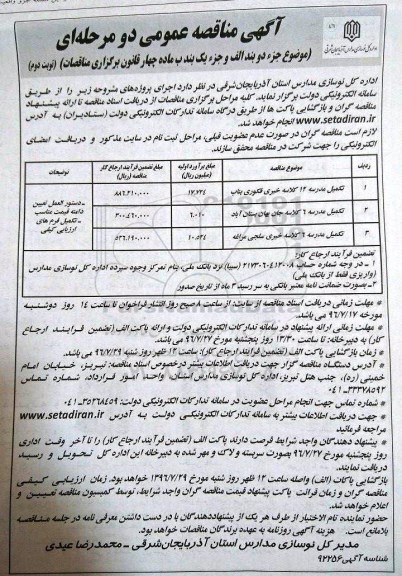 آگهی مناقصه عمومی دو مرحله‌ای
(موضوع جزء دو بند الف و جزء یک بند ب ماده چهار قانون برگزاری مناقصات) (نوبت دوم)
اداره کل نوسازی مدارس استان آذربایجان‌شرقی در نظر دارد اجرای پروژه‌های مشروحه زیر را از طریق
سامانه الکترونیکی دولت برگزار نماید. کلیه مراحل برگزاری مناقصات از دریافت اسناد مناقصه تا ارائه پیشنهاد
مناقصه گران و بازگشایی پاکت ها از طریق درگاه سامانه تدارکات الکترونیکی دولت (ستادایران) به آدرس
www.setadiran.ir انجام خواهد شد.
لازم است مناقصه گران در صورت عدم عضویت قبلی، مراحل ثبت نام در سایت مذکور و دریافت امضای
الکترونیکی را جهت شرکت در مناقصه محقق سازند.
ردیف موضوع مناقصه مبلغ برآورد اولیه (میلیون ریال) مبلغ تضمین فرآیند ارجاع کار مناقصه (ریال) توضیحات
۱ تکمیل مدرسه ۱۲ کلاسه خیری فکوری بناب ۱۷.۷۲۴ ۸۸۶.۲۱۰.۰۰۰
۲ تکمیل مدرسه ۶ کلاسه جان جهان بستان آباد ۶.۰۱۰ ۳۰۰.۴۶۰.۰۰۰
۳ تکمیل مدرسه ۶ کلاسه خیری سلجی مراغه ۱۰.۵۲۴ ۵۲۶.۱۹۰.۰۰۰
ـ دستور العمل تعیین
دامنه قیمت مناسب
ـ تکمیل فرم های
ارزیابی کیفی
تضمین فرآیند ارجاع کار:
۱ ـ در وجه شماره حساب ۲۱۷۳۰۶۰۴۱۲۰۰۸ (سیبا) نزد بانک ملی، بنام تمرکز وجوه سپرده اداره کل نوسازی مدارس
(واریزی فقط از بانک ملی)
۲ـ بصورت ضمانت نامه معتبر بانکی به سر رسید ۳ ماه از تاریخ صدور
* مهلت زمانی دریافت اسناد مناقصه از سایت: از ساعت ۸ صبح روز انتشار فراخوان تا ساعت ۱۴ روز دوشنبه
مورخه ۹۶/۷/۱۷ می باشد.
* مهلت زمانی ارائه پیشنهاد در سامانه تدارکات الکترونیکی دولت و ارائه پاکت الف (تضمین فرآیند ارجاع
کار) به دبیرخانه: تا ساعت ۱۳/۳۰ روز پنجشنبه مورخ ۹۶/۷/۲۷ می باشد.
* زمان بازگشایی پاکت الف (تضمین فرآیند ارجاع کار): ساعت ۱۲ ظهر روز شنبه ۹۶/۷/۲۹ می باشد.
* آدرس دستگاه مناقصه گزار جهت دریافت اطلاعات بیشتر درخصوص اسناد مناقصه: تبریز، خیابان امام
خمینی (ره)، جنب هتل تبریز، اداره کل نوسازی مدارس استان، واحد امور قرارداد، شماره تماس
۰۴۱-۳۳۳۷۸۵۹۳
* شماره تماس جهت انجام مراحل عضویت در سامانه تدارکات الکترونیکی دولت: ۰۴۱-۳۵۳۸۴۵۶۹
* جهت دریافت اطلاعات بیشتر به سامانه تدارکات الکترونیکی دولت به آدرس www.setadiran.ir
مراجعه فرمائید
* پیشنهاد دهندگان واجد شرایط فرصت دارند پاکت الف (تضمین فرآیند ارجاع کار) را تا آخر وقت اداری
روز پنجشنبه مورخ ۹۶/۷/۲۷ بصورت سربسته و لاک و مهر شده به دبیرخانه این اداره کل تحویل و رسید
دریافت نمایند.
بازگشایی پاکات (الف) واصله ساعت ۱۲ ظهر روز شنبه مورخ ۱۳۹۶/۷/۲۹ خواهد بود. زمان ارزیابی کیفی
مناقصه گران و زمان قرائت پاکت پیشنهاد قیمت مناقصه گران واجد شرایط، توسط کمیسیون مناقصه تعیین و
اعلام خواهد شد.
حضور نماینده تام الاختیار از طرف هر یک از پیشنهاددهندگان با در دست داشتن معرفی نامه در جلسه مناقصه
بلامانع است. هزینه آگهی روزنامه به عهده برندگان مناقصات خواهد بود.
مدیر کل نوسازی مدارس استان آذربایجان‌شرقی ـ محمدرضا عیدی
شناسه آگهی ۹۲۲۵۶